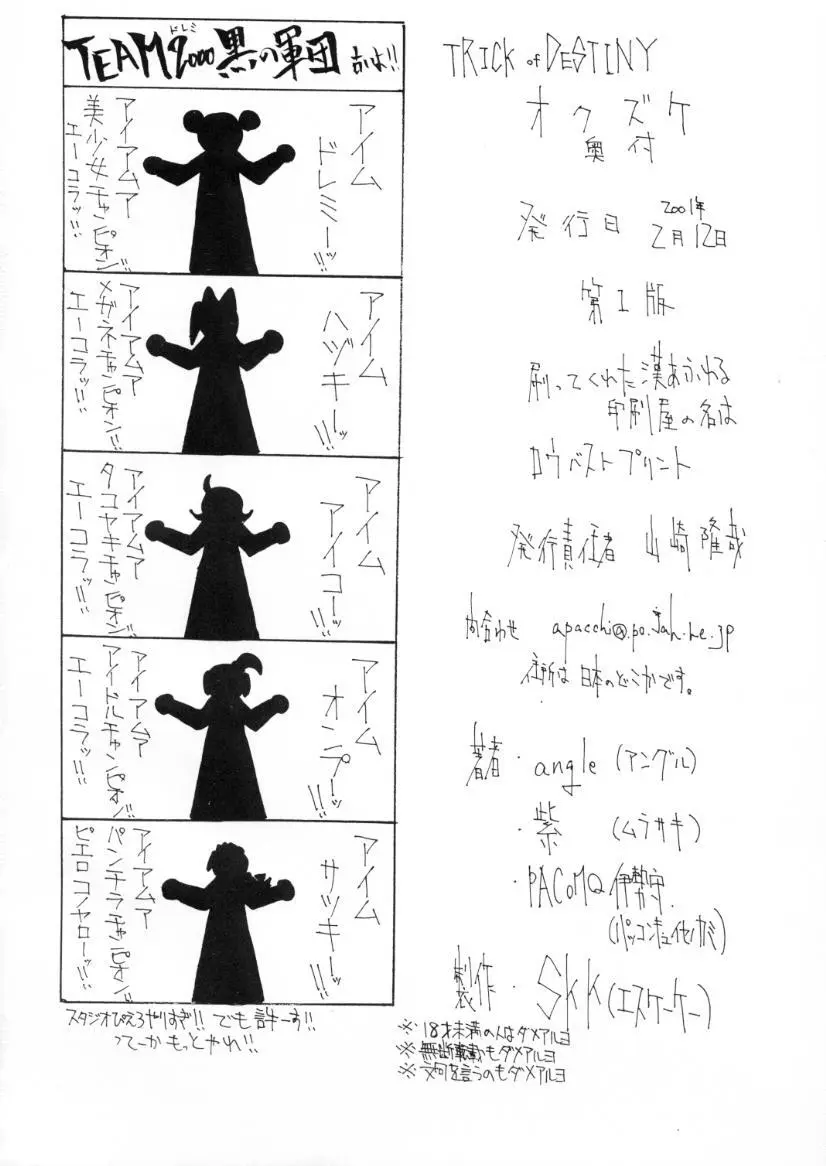 TEAMドレミ2000黒の軍団
アイム
ドレミーッ!!
アイアムア
美少女チャンピオン!!
エーコラッ!!!
アイム
ハヅキーッ!!!
アイアムア
メガネチャンピオン!!
エーコラッ!!!
アイム
アイコーッ!!!
アイアムア
タコヤキチャンピオン!!
エーコラッ!!!
アイム
オンプーッ!!!
アイアムア
アイドルチャンピオン!!
エーコラッ!!!
アイム
サツキーッ!!!
アイアムア
パンチラチャンピオン!!
ピエロコノヤローッ!!!
スタジオぴえろやりすぎ!! でも許ーす!!
つーかもっとやれ!!
TRICK of DESTINY
オクズケ
奥付
発行日 2001年
2月12日
第1版
刷ってくれた漢あふれる
印刷屋の名は
ロウバストプリント
発行責任者 山崎隆哉
問合わせ apacchi@po.jah.ne.jp
住所は日本のどこかです。
著者・angle(アングル)
・紫 (ムラサキ)
・PACoMQ伊勢守
(パッコンキュイセノカミ)
製作・SKK(エスケーケー)
※18才未満の人はダメアルヨ
※無断転載もダメアルヨ
※文句を言うのもダメアルヨ